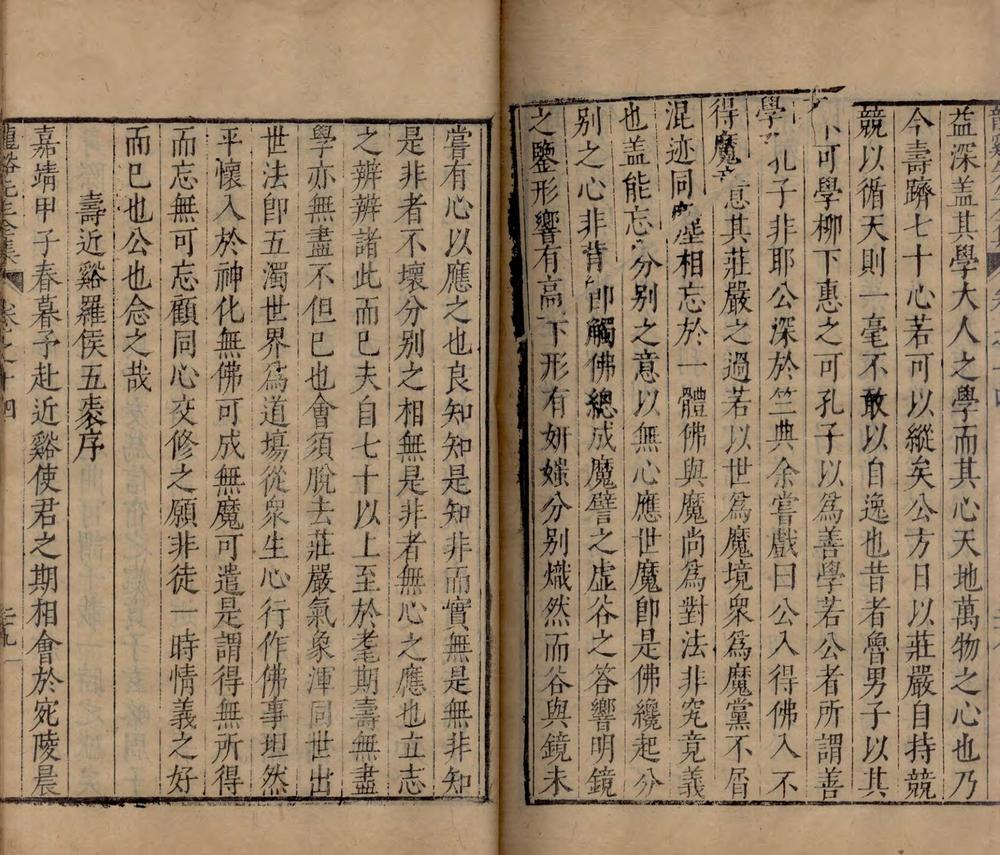 益深盖其學大人之學而其心天地萬物之心也乃
今壽躋七十心若可以縱矣公方日以莊嚴自持競
競以循天則一毫不敢以自逸也昔者魯男子以其
不可學柳下惠之可孔子以爲善學若公者所謂善
學孔子非耶公深於竺典余嘗戲曰公入得佛入不
得魔意其莊嚴之過若以世爲魔境衆爲魔黨不屑
混迹同塵相忘於一體佛與魔尚爲對法非究竟義
也盖能忘分别之意以無心應世魔即是佛纔起分
别之心非背即觸佛總成魔譬之虚谷之答響明鏡
之鑒形響有高下形有妍媸分别熾然而谷與鏡未
嘗有心以應之也良知知是知非而實無是無非知
是非者不壞分别之相無是非者無心之應也立志
之辨辨諸此而已夫自七十以上至於耄期壽無盡
學亦無盡不但已也會須脫去莊嚴氣象渾同世出
世法即五濁世界爲道塲從衆生心行作佛事坦然
平懷入於神化無佛可成無魔可遣是謂得無所得
而忘無可忘顧同心交修之願非徒一時情義之好
而已也公也念之哉
壽近谿羅侯五袠序
嘉靖甲子春暮予赴近谿使君之期相會於宛陵晨
龍谿先生全集 卷之十四